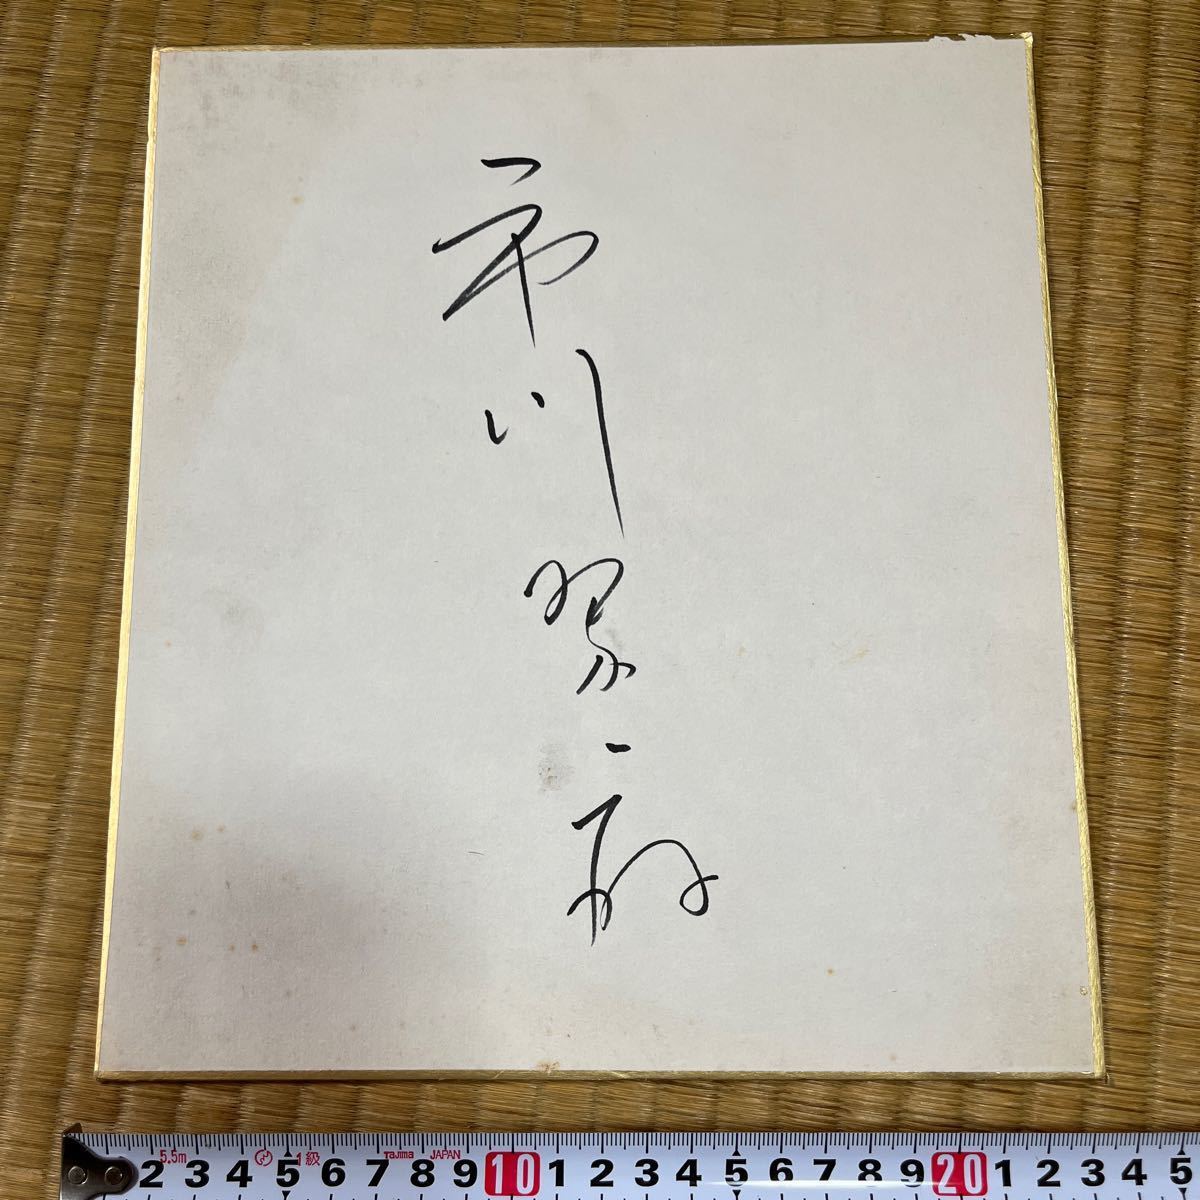 市川翠扇
5.5m 1級 Tajima JAPAN
2 3 4 5 6 7 8 9 10 1 2 3 4 5 6 7 8 9 20 1 2 3 4 5